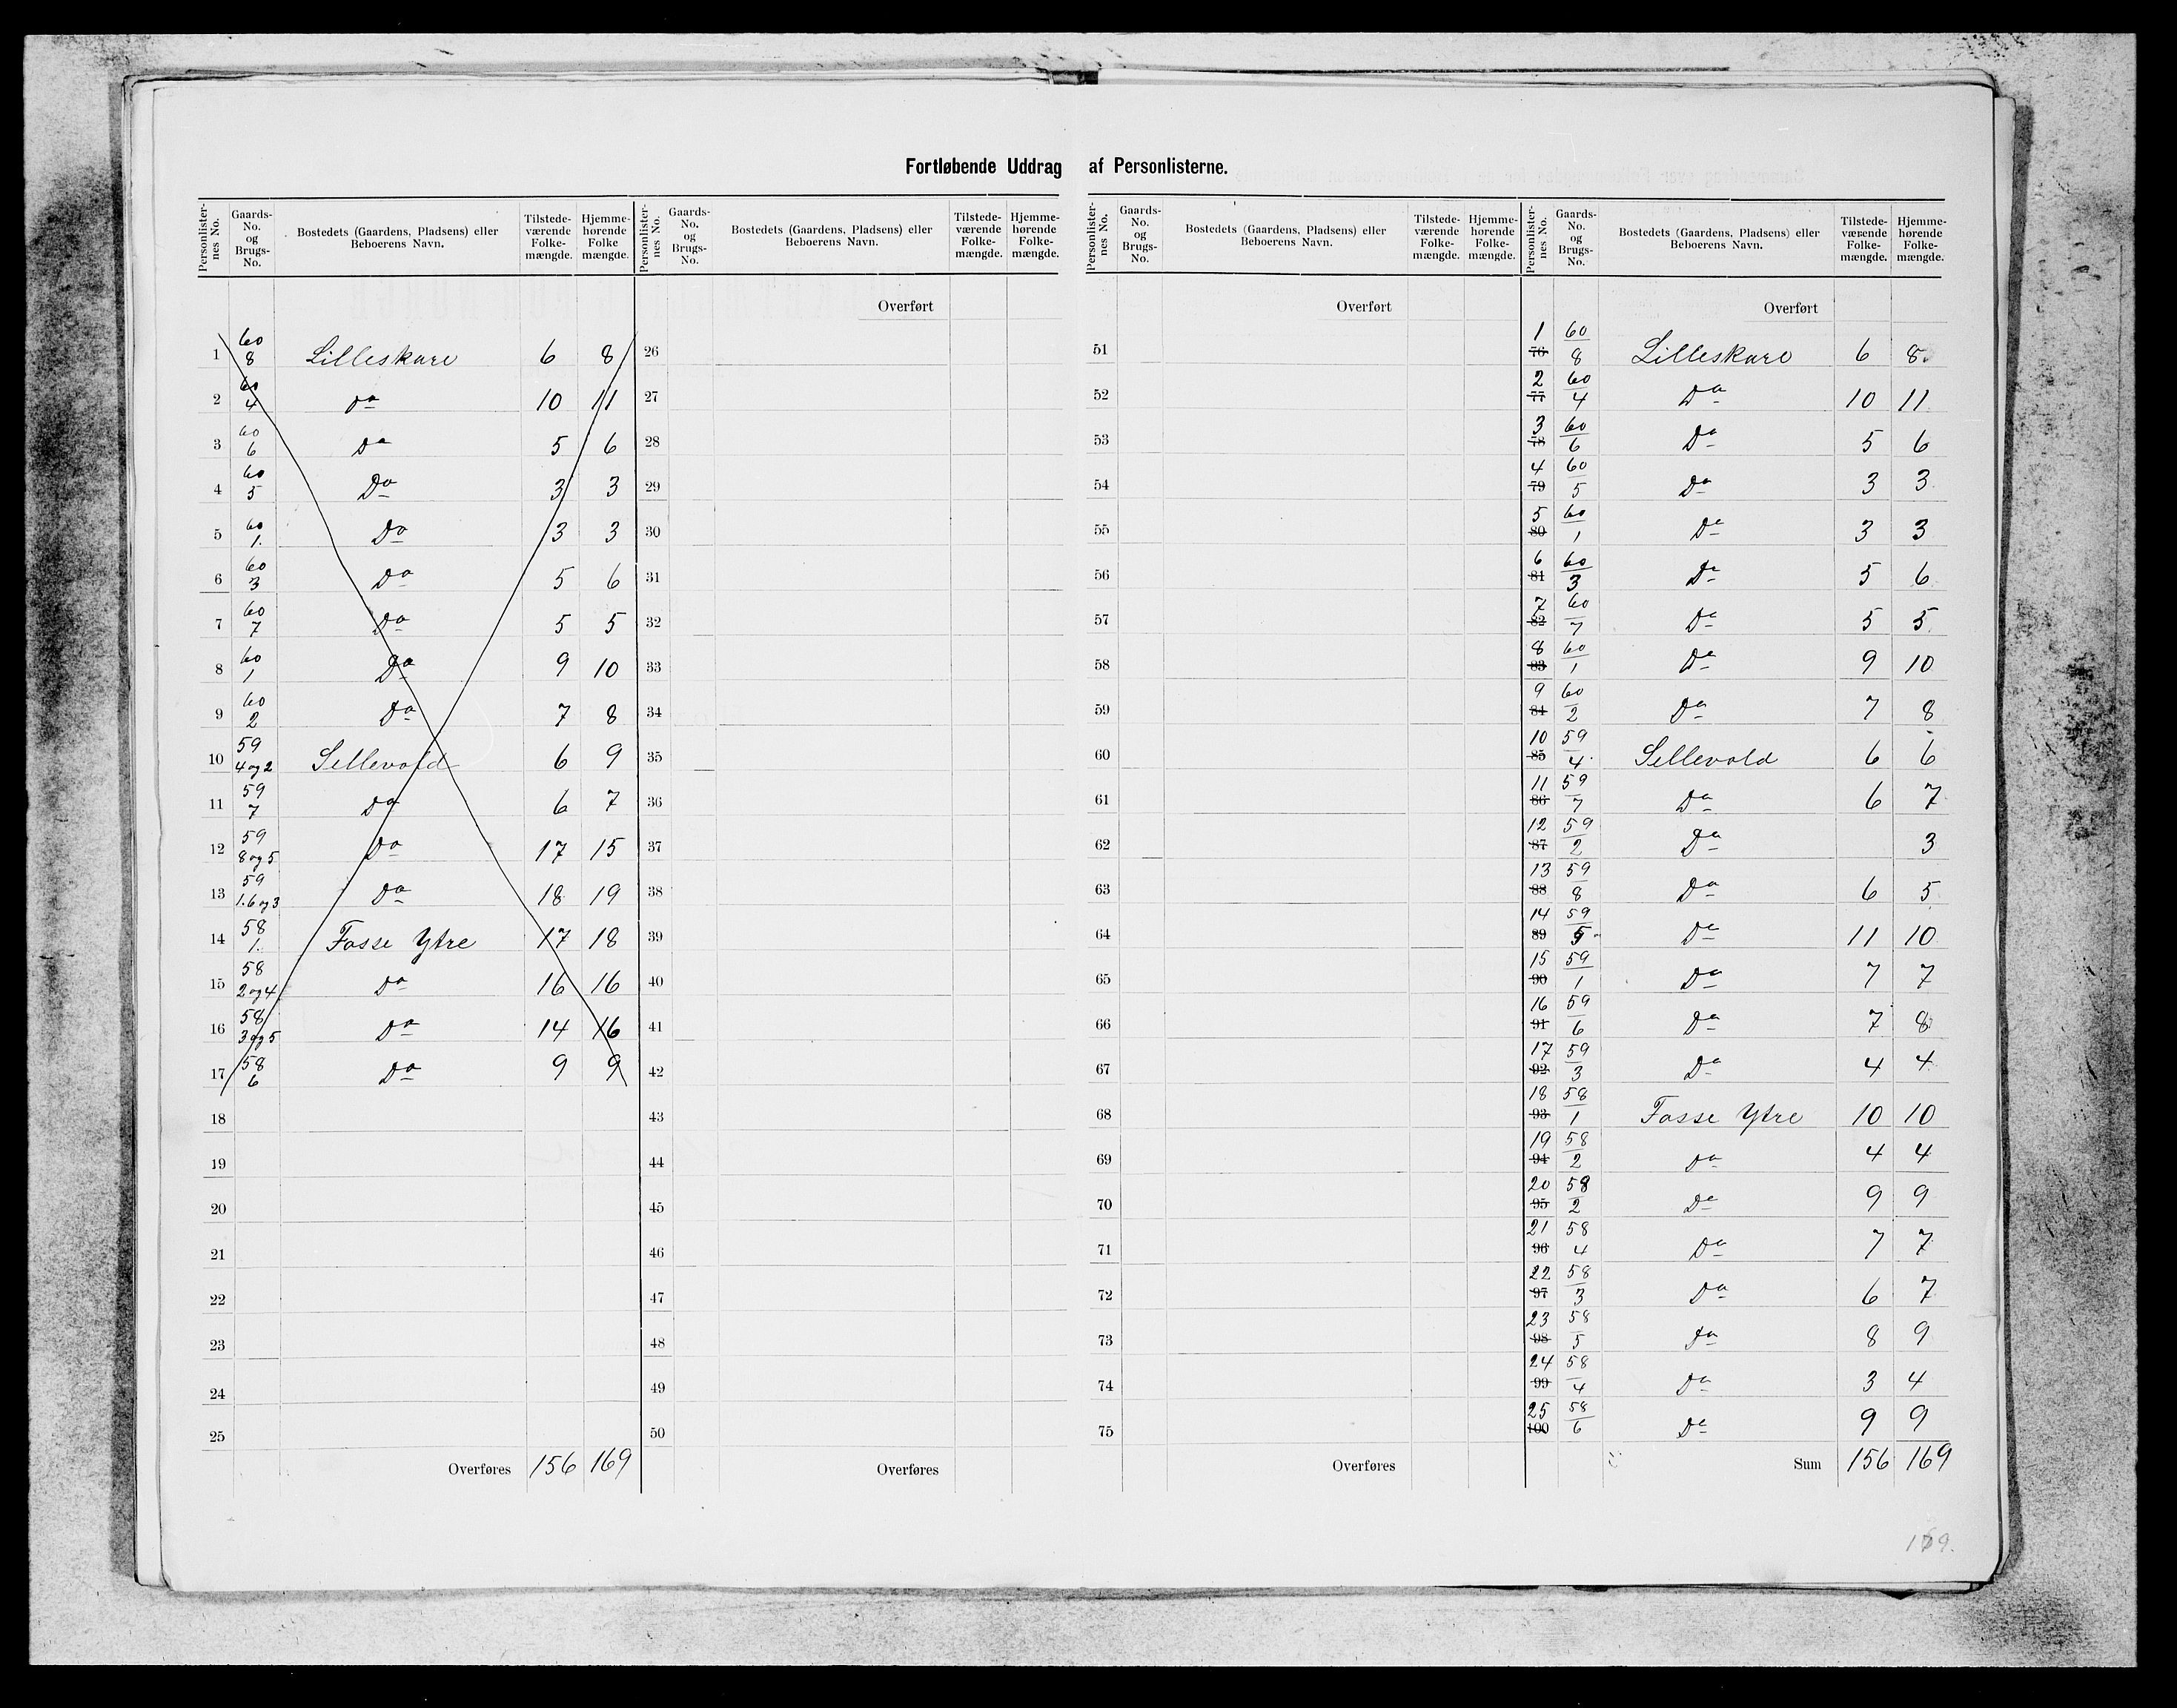 Fortløbende Uddrag af Personlisterne.
Personlister-nes No. | Gaards-No. og Brugs-No. | Bostedets (Gaardens, Pladsens) eller Beboerens Navn. | Tilstede-værende Folke-mængde. | Hjemme-hørende Folke mængde.
1 60/8 Lilleskare 6 8
2 60/4 Do 10 11
3 60/6 Do 5 6
4 60/5 Do 3 3
5 60/1. Do 3 3
6 60/3 Do 5 6
7 60/7 Do 5 5
8 60/1 Do 9 10
9 60/2 Do 7 8
10 59/4 og 2 Sellevold 6 9
11 59/7 Do 6 7
12 59/8 og 5 Do 17 15
13 59/1. 6 og 3 Do 18 19
14 58/1. Fosse Ytre 17 18
15 58/2 og 4 Do 16 16
16 58/3 og 5 Do 14 16
17 58/6 Do 9 9
18
19
20
21
22
23
24
25
Overføres 156 169
Personlister-nes No. | Gaards-No. og Brugs-No. | Bostedets (Gaardens, Pladsens) eller Beboerens Navn. | Tilstede-værende Folke-mængde. | Hjemme-hørende Folke-mængde.
Overført
26
27
28
29
30
31
32
33
34
35
36
37
38
39
40
41
42
43
44
45
46
47
48
49
50
Overføres
Personlister-nes No. | Gaards-No. og Brugs-No. | Bostedets (Gaardens, Pladsens) eller Beboerens Navn. | Tilstede-værende Folke-mængde. | Hjemme-hørende Folke-mængde.
Overført
51
52
53
54
55
56
57
58
59
60
61
62
63
64
65
66
67
68
69
70
71
72
73
74
75
Overføres
Personlister-nes No. | Gaards-No. og Brugs-No. | Bostedets (Gaardens, Pladsens) eller Beboerens Navn. | Tilstede-værende Folke-mængde. | Hjemme-hørende Folke-mængde.
Overført
1 76 60/8 Lilleskare 6 8
2 77 60/4 Do 10 11
3 78 60/6 Do 5 6
4 79 60/5 Do 3 3
5 80 60/1 Do 3 3
6 81 60/3 Do 5 6
7 82 60/7 Do 5 5
8 83 60/1 Do 9 10
9 84 60/2 Do 7 8
10 85 59/4 Sellevold 6 6
11 86 59/7 Do 6 7
12 87 59/2 Do 3
13 88 59/8 Do 6 5
14 89 59/5 Do 11 10
15 90 59/1 Do 7 7
16 91 59/6 Do 7 8
17 92 59/3 Do 4 4
18 93 58/1 Fosse Ytre 10 10
19 94 58/2 Do 4 4
20 95 58/2 Do 9 9
21 96 58/4 Do 7 7
22 97 58/3 Do 6 7
23 98 58/5 Do 8 9
24 99 58/4 Do 3 4
25 100 58/6 Do 9 9
Sum 156 169